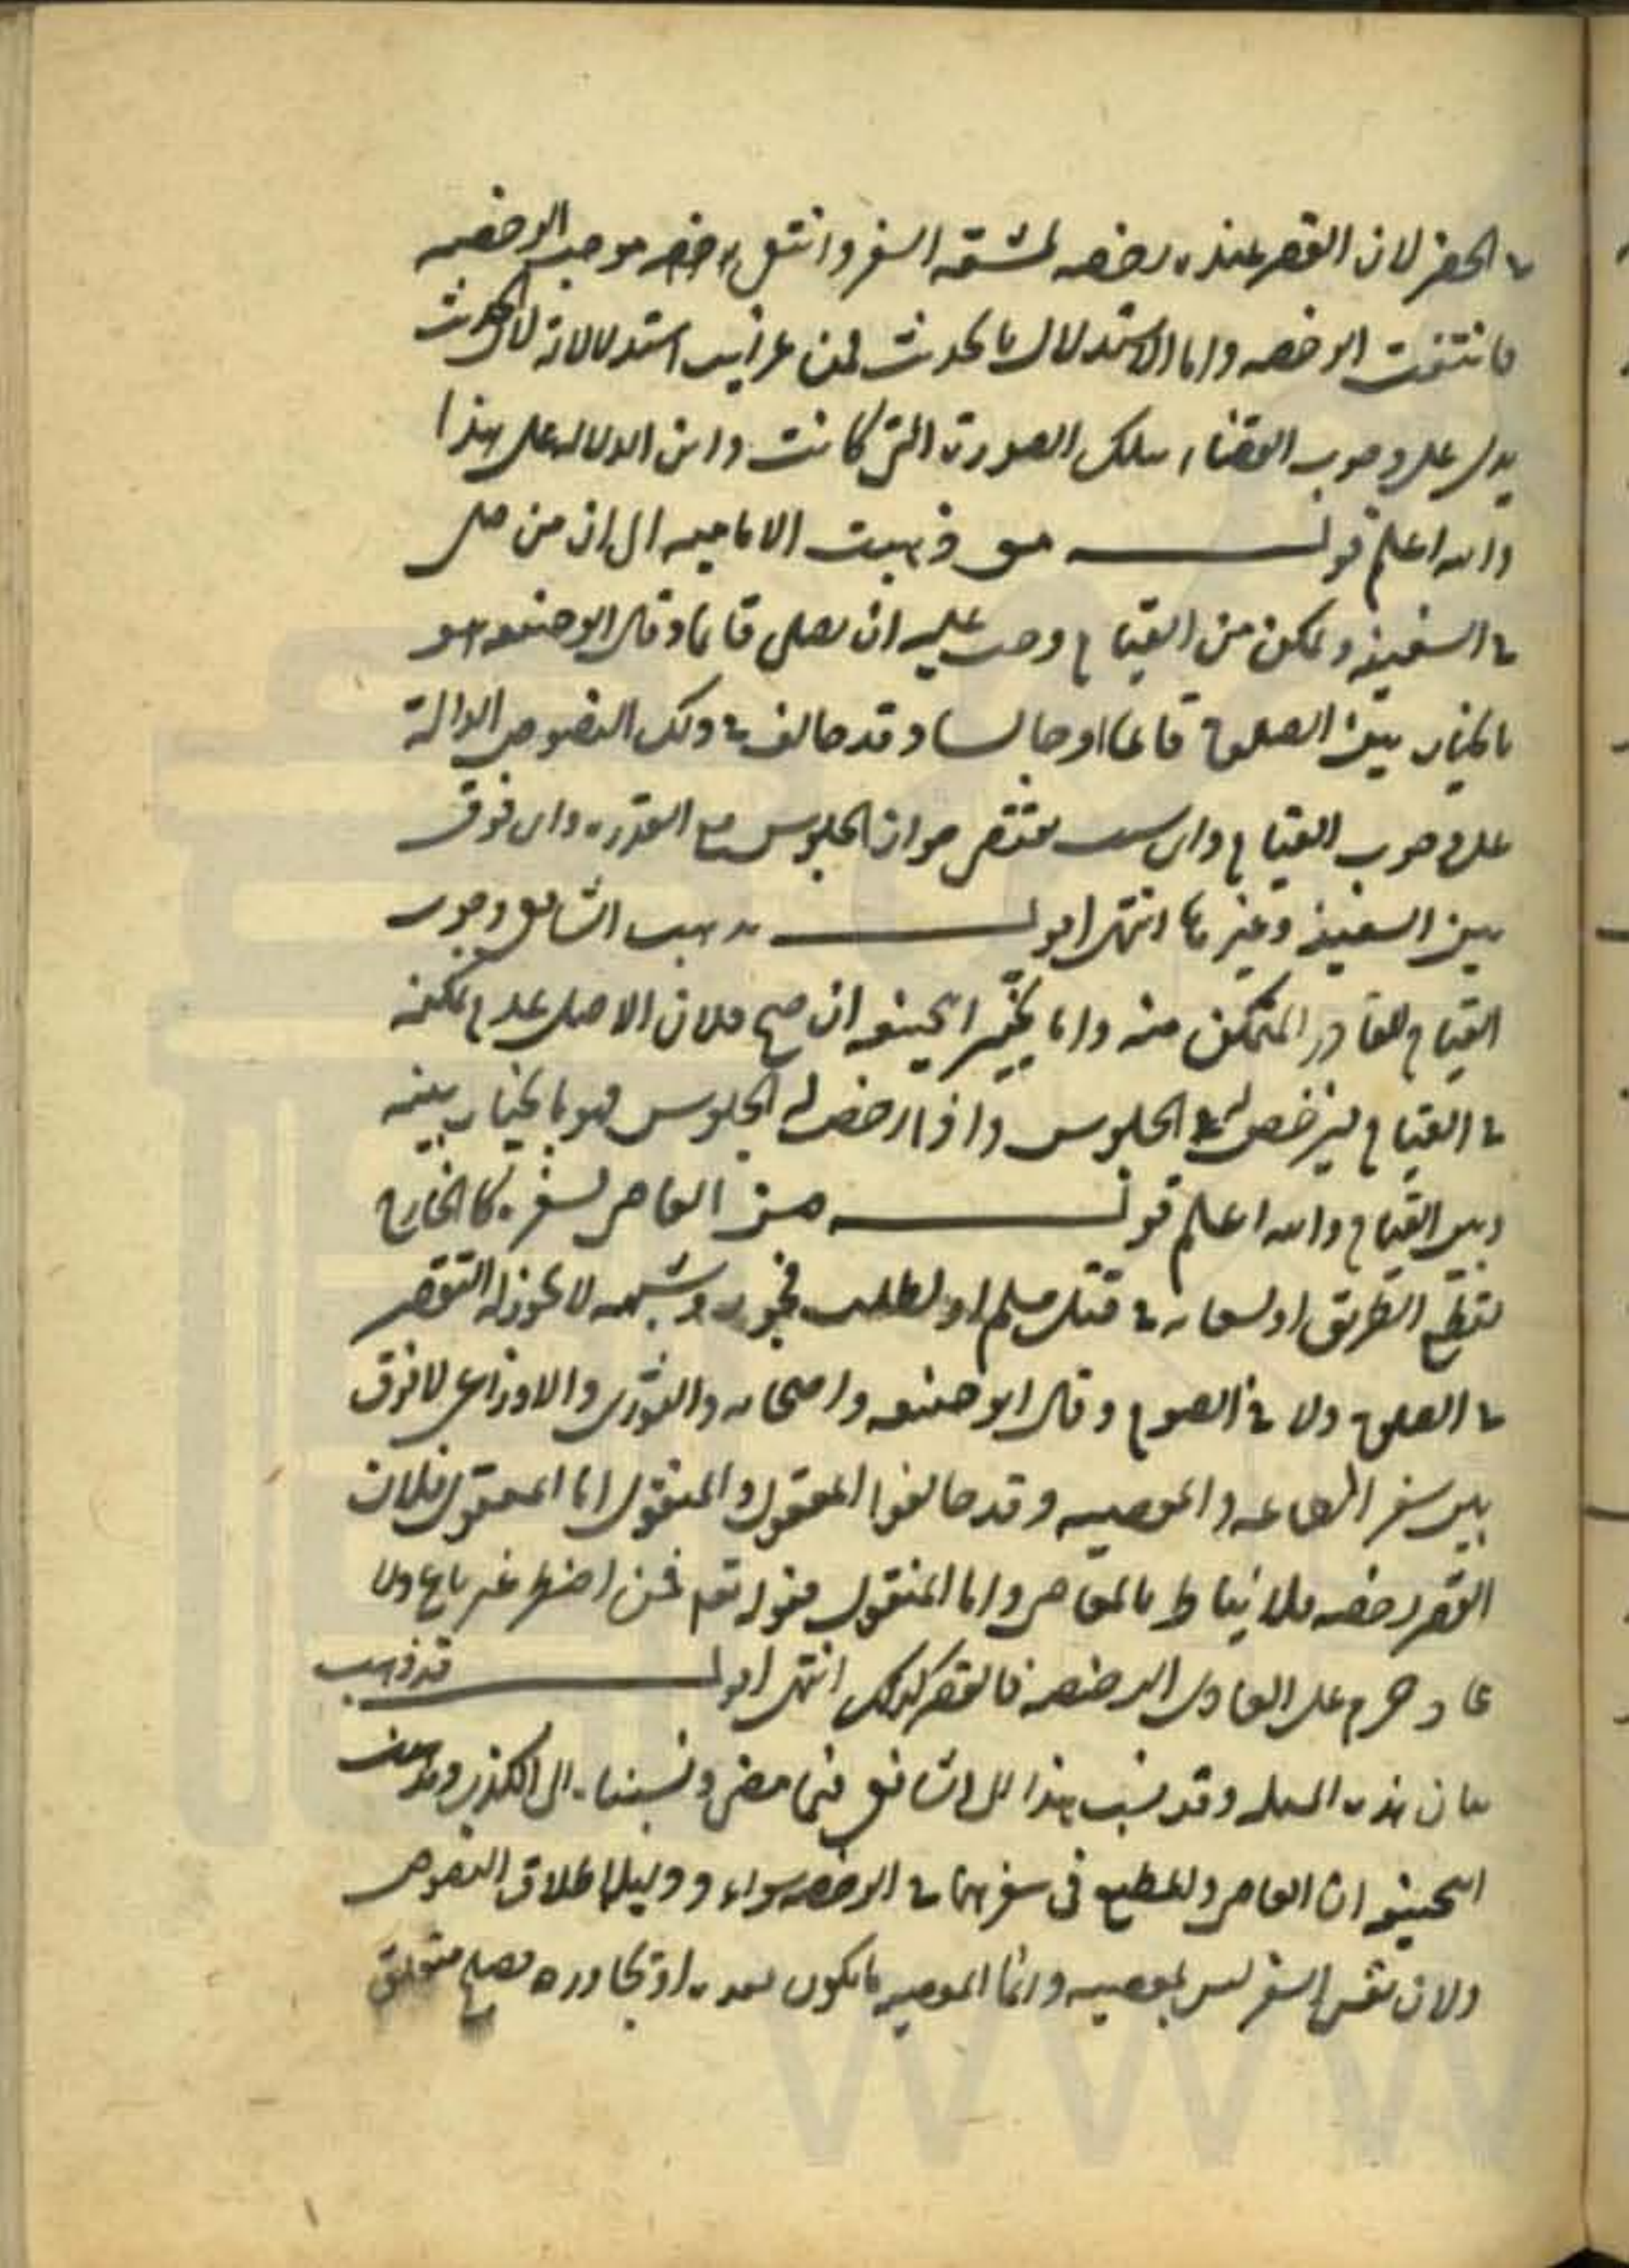 في الحضر لان القصر عنده رخصه لمشقه السفر وانتفى موجب الرخصه
فانتفت الرخصه واما الاستدلال بالحديث فمن غرايب استدلالاته لان الحديث
يدل على وجوب القضاء بتلك الصورة التي كانت واين الدلاله على هذا
والله اعلم قولــه ذهبت الاماميه الى ان من صلى
في السفينه وتمكن من القيام وجب عليه ان يصلى قائما وقال ابو حنيفه هو
بالخيار بين الصلوة قائما او جالسا وقد خالف في ذلك النصوص الدالة
على وجوب القيام واى سبب يقتضى جواز الجلوس مع القدره واى فرق
بين السفينه وغيرها انتهى اقولــ مذهب الشافعي وجوب
القيام للقادر المتمكن منه واما تخيير ابى حنيفه ان صح فلان الاصل عدم تمكنه
في القيام فيرخص له في الجلوس واذا رخص له الجلوس فهو بالخيار بينه
وبين القيام والله اعلم قولــه العاصى بسفره كالخارج
لقطع الطريق او لسعايه في قتل مسلم او لطلب فجور وشبهه لا يجوز له التقصير
في الصلوة ولا في الصوم وقال ابو حنيفه واصحابه والثورى والاوزاعى لا فرق
بين سفر الطاعه والمعصيه وقد خالفوا المعقول والمنقول اما المعقول فلان
القصر رخصه فلا يناط بالمعاصى واما المنقول فقوله تعم فمن اضطر غير باغ ولا
عاد حرم على العادى الرخصه فالقصر كذلك انتهى اقولــ قد ذهب
بيان هذه المسله وقد نسب هذا الى الشافعي فيما مضى ونسبناه الى الكذب ومذهب
ابى حنيفه ان العاصى والمطيع فى سفرهما في الرخصه سواء ودليله اطلاق النصوص
ولان نفس السفر ليس بمعصيه وانما المعصيه ما يكون بعده او تجاوره فصلح متعلق